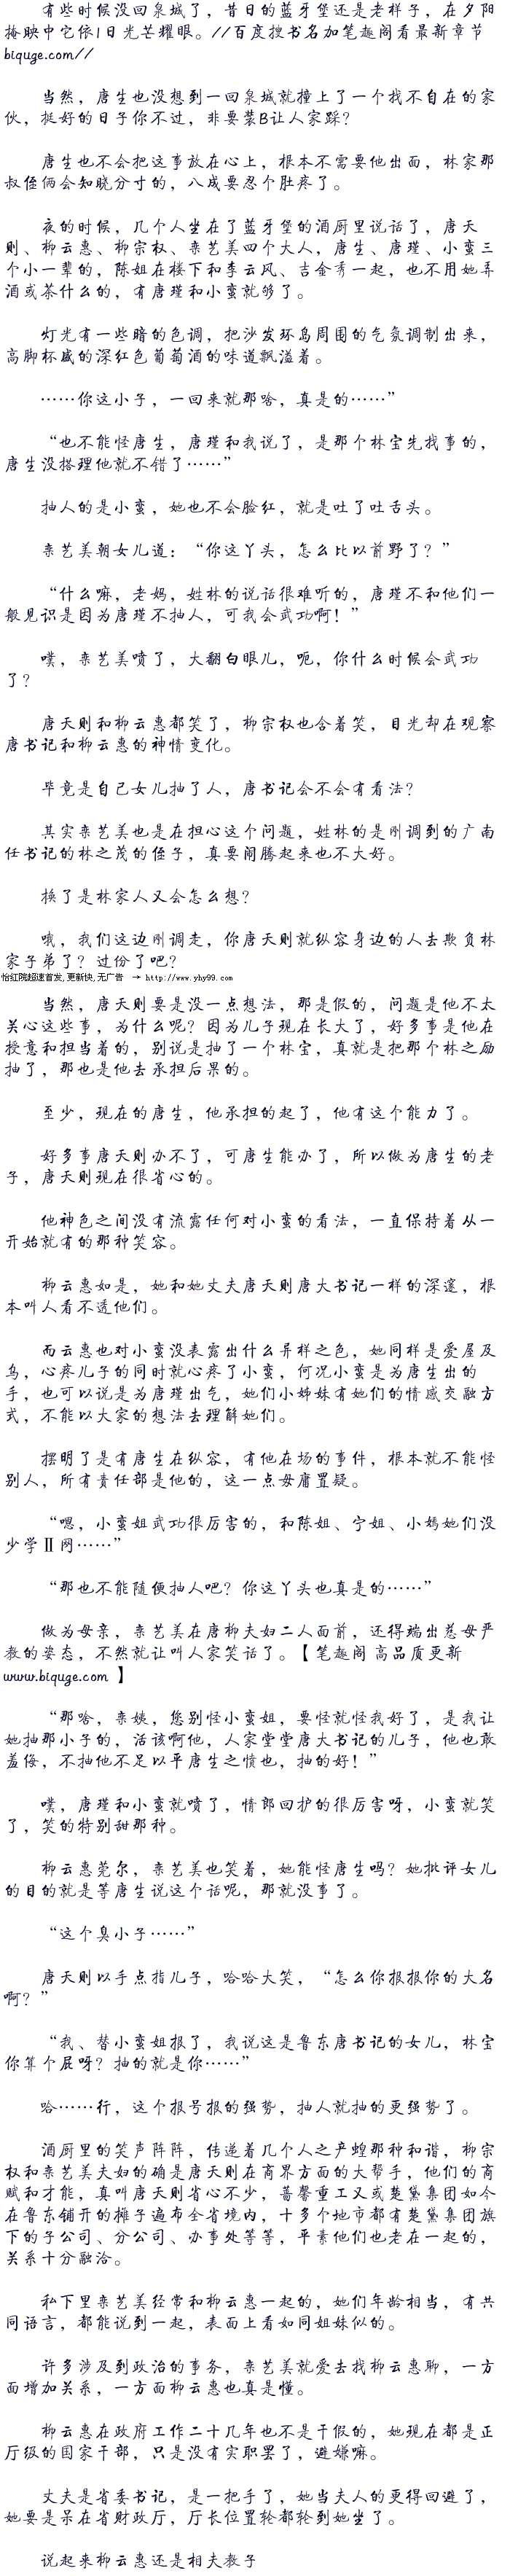 有些时候没回泉城了，昔日的蓝牙堡还是老样子，在夕阳
掩映中它依旧日光芒耀眼。//百度搜书名加笔趣阁看最新章节
biquge.com//
当然，唐生也没想到一回泉城就撞上了一个找不自在的家
伙，挺好的日子你不过，非要装B让人家踩？
唐生也不会把这事放在心上，根本不需要他出面，林家那
叔侄俩会知晓分寸的，八成要忍个肚疼了。
夜的时候，几个人坐在了蓝牙堡的酒厨里说话了，唐天
则、柳云惠、柳宗权、栾艺美四个大人，唐生、唐瑾、小蛮三
个小一辈的，陈姐在楼下和李云风、吉金秀一起，也不用她弄
酒或茶什么的，有唐瑾和小蛮就够了。
灯光有一些暗的色调，把沙发环岛周围的气氛调制出来，
高脚杯盛的深红色葡萄酒的味道飘溢着。
……你这小子，一回来就那啥，真是的……”
“也不能怪唐生，唐瑾和我说了，是那个林宝先找事的，
唐生没搭理他就不错了……”
抽人的是小蛮，她也不会脸红，就是吐了吐舌头。
栾艺美朝女儿道：“你这丫头，怎么比以前野了？”
“什么嘛，老妈，姓林的说话很难听的，唐瑾不和他们一
般见识是因为唐瑾不抽人，可我会武功啊！”
噗，栾艺美喷了，大翻白眼儿，呃，你什么时候会武功
了？
唐天则和柳云惠都笑了，柳宗权也含着笑，目光却在观察
唐书记和柳云惠的神情变化。
毕竟是自己女儿抽了人，唐书记会不会有看法？
其实栾艺美也是在担心这个问题，姓林的是刚调到的广南
任书记的林之茂的侄子，真要闹腾起来也不大好。
换了是林家人又会怎么想？
哦，我们这边刚调走，你唐天则就纵容身边的人去欺负林
家子弟了？过份了吧？
怡红院超速首发,更新快,无广告 → http://www.yhy99.com
当然，唐天则要是没一点想法，那是假的，问题是他不太
关心这些事，为什么呢？因为儿子现在长大了，好多事是他在
授意和担当着的，别说是抽了一个林宝，真就是把那个林之励
抽了，那也是他去承担后果的。
至少，现在的唐生，他承担的起了，他有这个能力了。
好多事唐天则办不了，可唐生能办了，所以做为唐生的老
子，唐天则现在很省心的。
他神色之间没有流露任何对小蛮的看法，一直保持着从一
开始就有的那种笑容。
柳云惠如是，她和她丈夫唐天则唐大书记一样的深邃，根
本叫人看不透他们。
而云惠也对小蛮没表露出什么异样之色，她同样是爱屋及
乌，心疼儿子的同时就心疼了小蛮，何况小蛮是为唐生出的
手，也可以说是为唐瑾出气，她们小姊妹有她们的情感交融方
式，不能以大家的想法去理解她们。
摆明了是有唐生在纵容，有他在场的事件，根本就不能怪
别人，所有责任部是他的，这一点毋庸置疑。
“嗯，小蛮姐武功很厉害的，和陈姐、宁姐、小嫣她们没
少学Ⅱ网……”
“那也不能随便抽人吧？你这丫头也真是的……”
做为母亲，栾艺美在唐柳夫妇二人面前，还得端出慈母严
教的姿态，不然就让叫人家笑话了。【笔趣阁 高品质更新
www.biquge.com 】
“那啥，栾姨，您别怪小蛮姐，要怪就怪我好了，是我让
她抽那小子的，活该啊他，人家堂堂唐大书记的儿子，他也敢
羞侮，不抽他不足以平唐生之愤也，抽的好！”
噗，唐瑾和小蛮就喷了，情郎回护的很厉害呀，小蛮就笑
了，笑的特别甜那种。
柳云惠莞尔，栾艺美也笑着，她能怪唐生吗？她批评女儿
的目的就是等唐生说这个话呢，那就没事了。
“这个臭小子……”
唐天则以手点指儿子，哈哈大笑，“怎么你报报你的大名
啊？”
“我、替小蛮姐报了，我说这是鲁东唐书记的女儿，林宝
你算个屁呀？抽的就是你……”
哈……行，这个报号报的强势，抽人就抽的更强势了。
酒厨里的笑声阵阵，传递着几个人之产蝗那种和谐，柳宗
权和栾艺美夫妇的确是唐天则在商界方面的大帮手，他们的商
赋和才能，真叫唐天则省心不少，蔷馨重工又或楚黛集团如今
在鲁东铺开的摊子遍布全省境内，十多个地市都有楚黛集团旗
下的子公司、分公司、办事处等等，平素他们也老在一起的，
关系十分融洽。
私下里栾艺美经常和柳云惠一起的，她们年龄相当，有共
同语言，都能说到一起，表面上看如同姐妹似的。
许多涉及到政治的事务，栾艺美就爱去找柳云惠聊，一方
面增加关系，一方面柳云惠也真是懂。
柳云惠在政府工作二十几年也不是干假的，她现在都是正
厅级的国家干部，只是没有实职罢了，避嫌嘛。
丈夫是省委书记，是一把手了，她当夫人的更得回避了，
她要是呆在省财政厅，厅长位置轮都轮到她坐了。
说起来柳云惠还是相夫教子